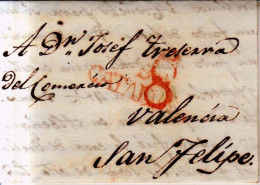 A Dn. Josef Treserra
del Comercio
8
Valencia
San Felipe.